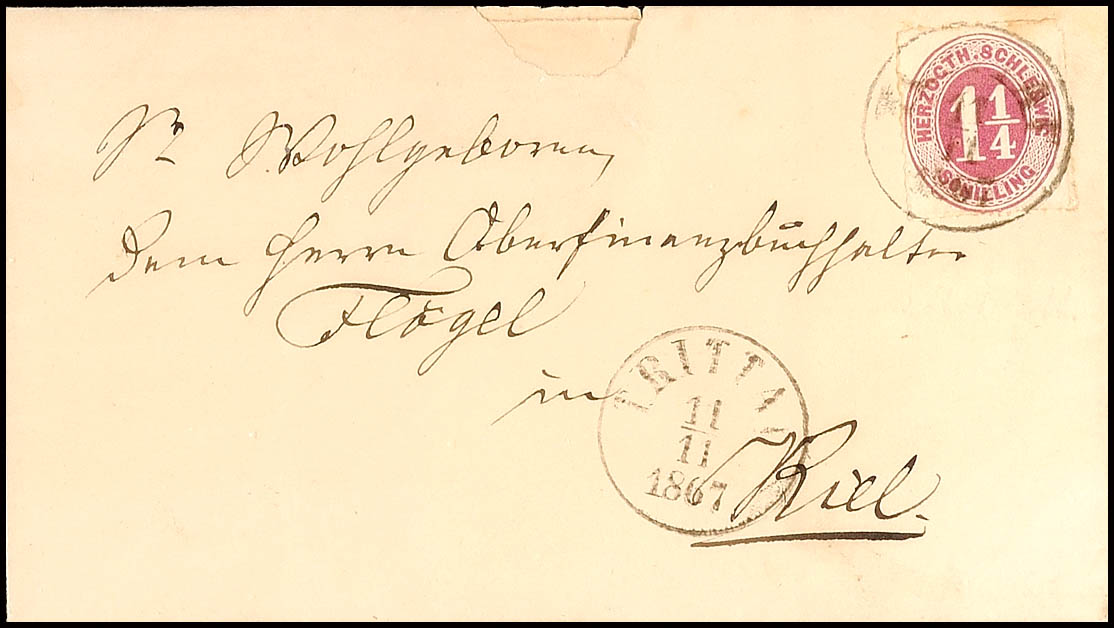 HERZOGTH. SCHLESWIG
1 1/4
SCHILLING
Sr Wohlgeboren,
dem Herrn Oberfinanzbuchhalter
Flögel
in
Kiel.
TRITTAU
11
11
1867